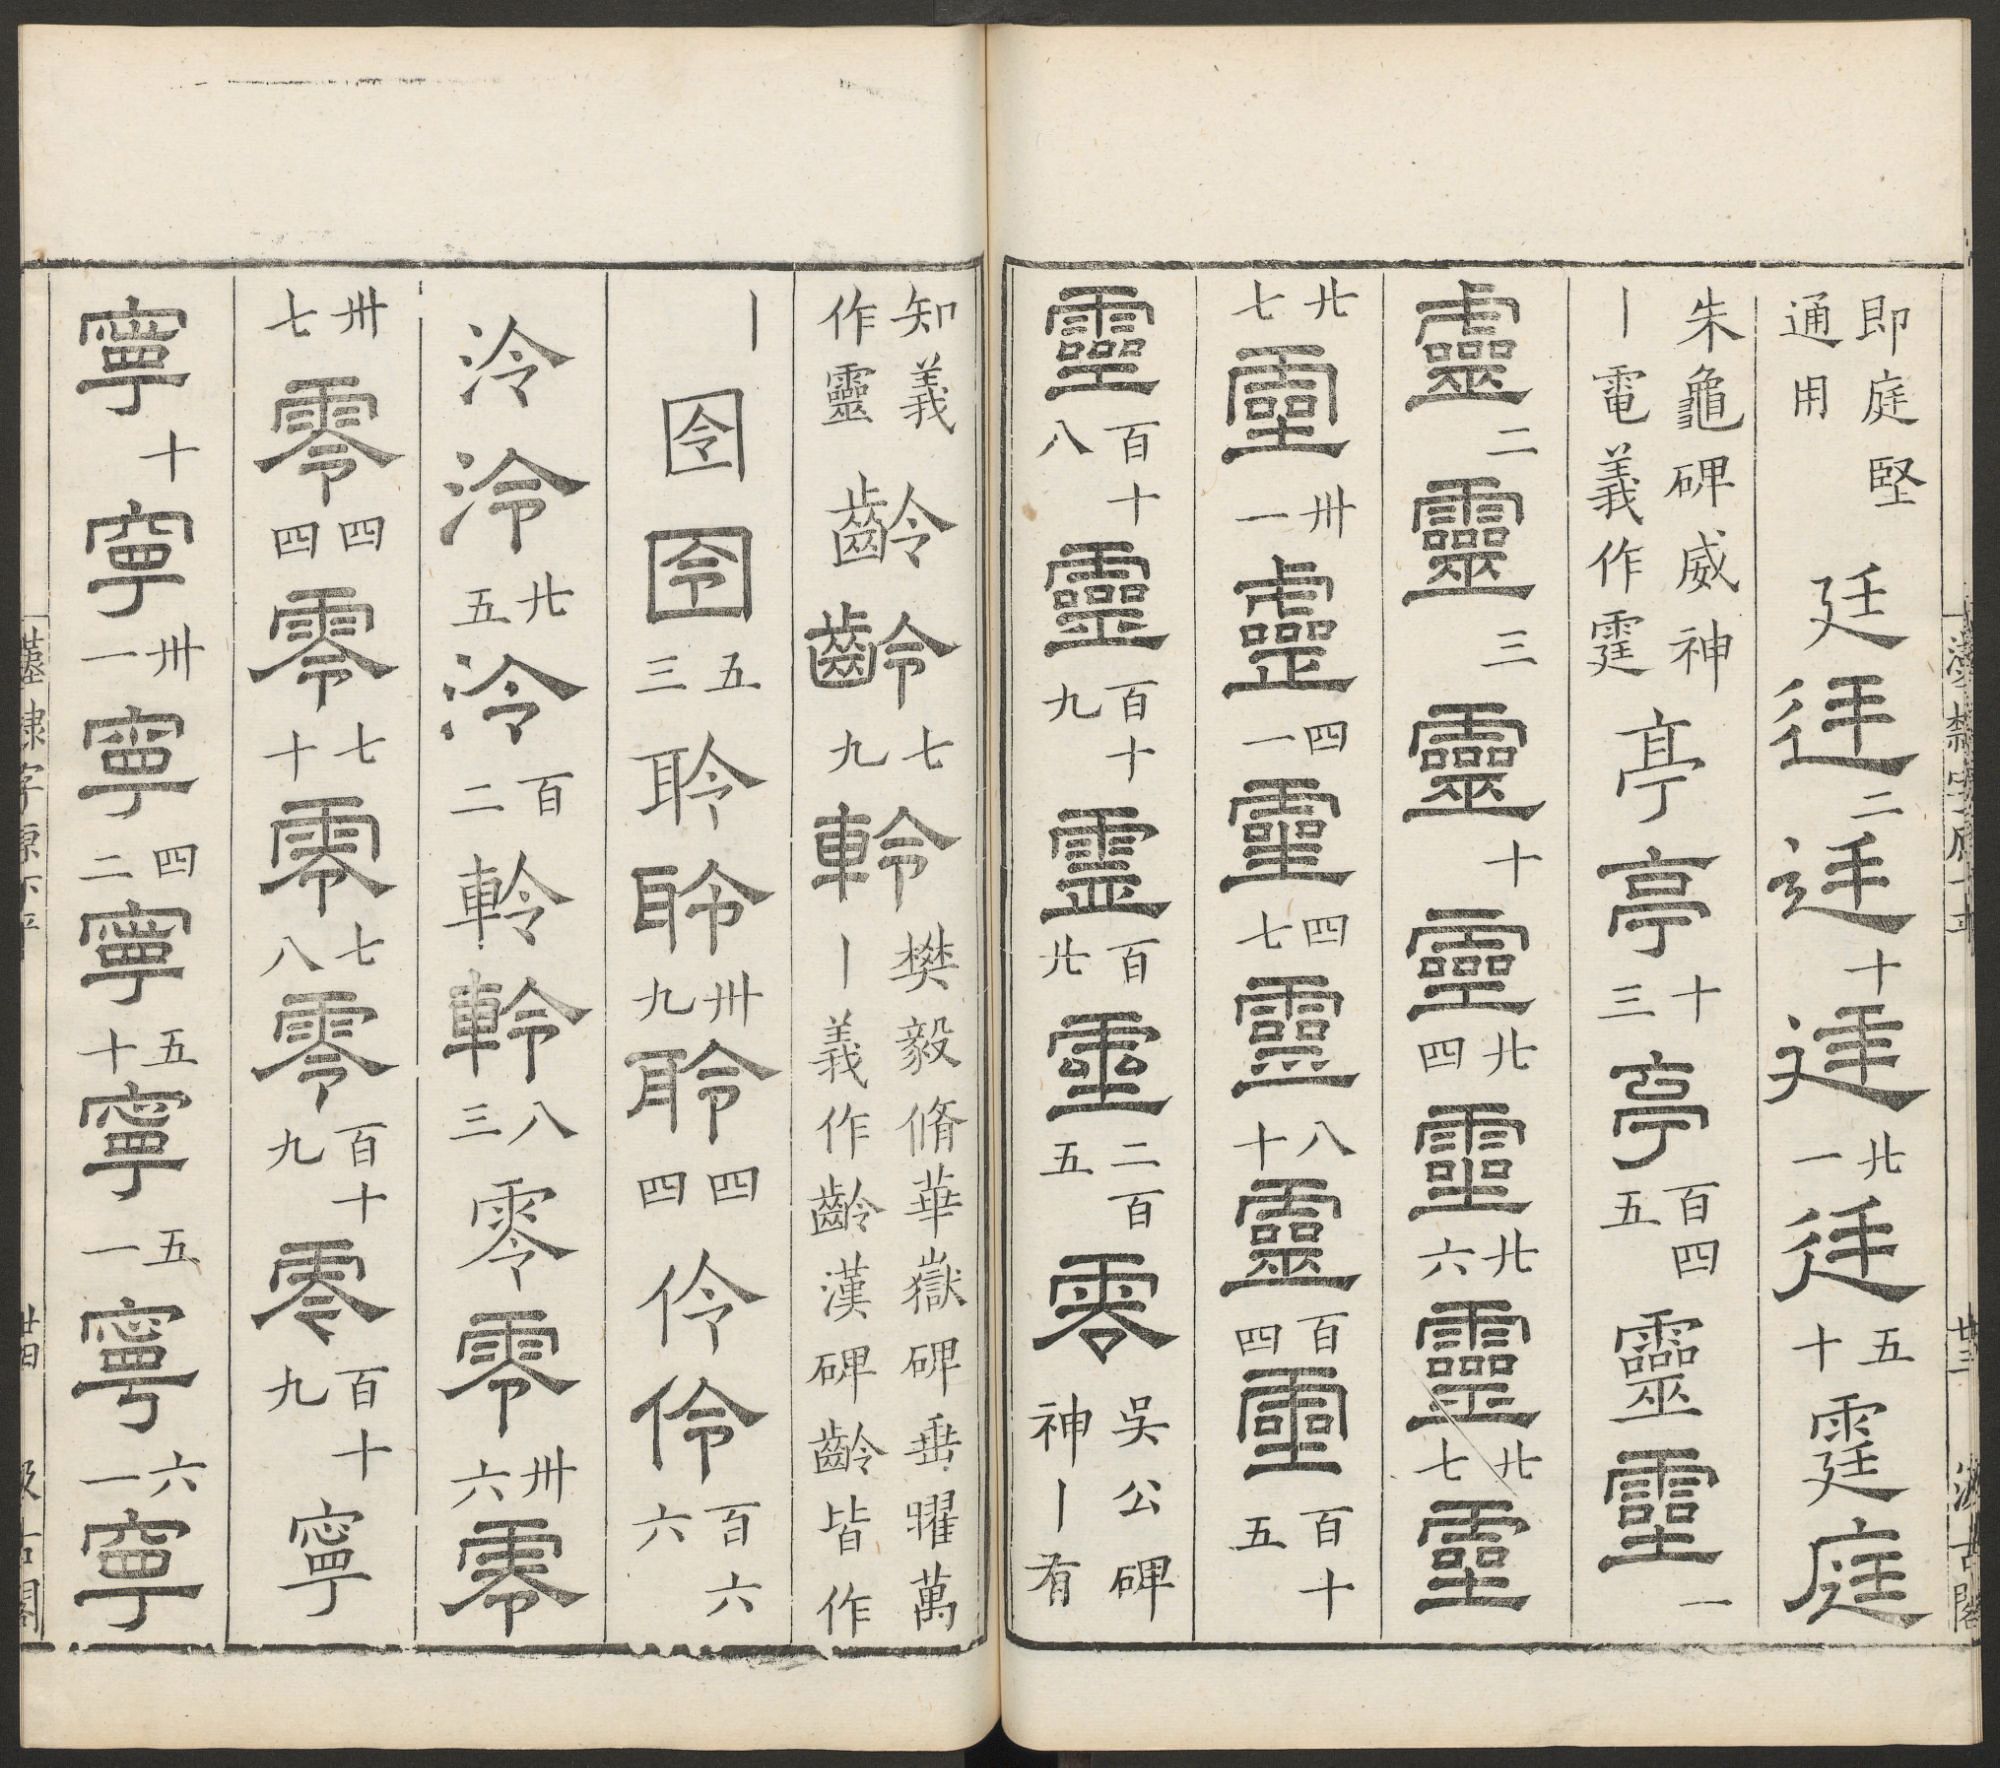 即庭堅
通用
廷廷二廷十廷廿一廷五十霆庭
朱龜碑威神
丨電義作霆
亭亭十三亭百四五靈靈一
靈二靈三靈十靈廿四靈廿六靈廿七靈
廿七靈卅一靈四一靈四七靈八十靈百四靈百十五
靈百十八靈百十九靈百廿靈二百五零
吳公碑
神丨有
漢隸字原下平
廿三
汲古閣
知義
作靈
齡齡七九軨
樊毅脩華嶽碑垂曜萬
丨義作齡漢碑齡皆作
丨
囹囹五三聆聆卅九聆四四伶伶百六六
泠泠廿五泠百二軨軨八三零零卅六零
卅七零四四零七十零七八零百十九零百十九寧
寧十寧卅一寧四二寧五十寧五一寧六一寧
漢隸字原下平
廿四
汲古閣